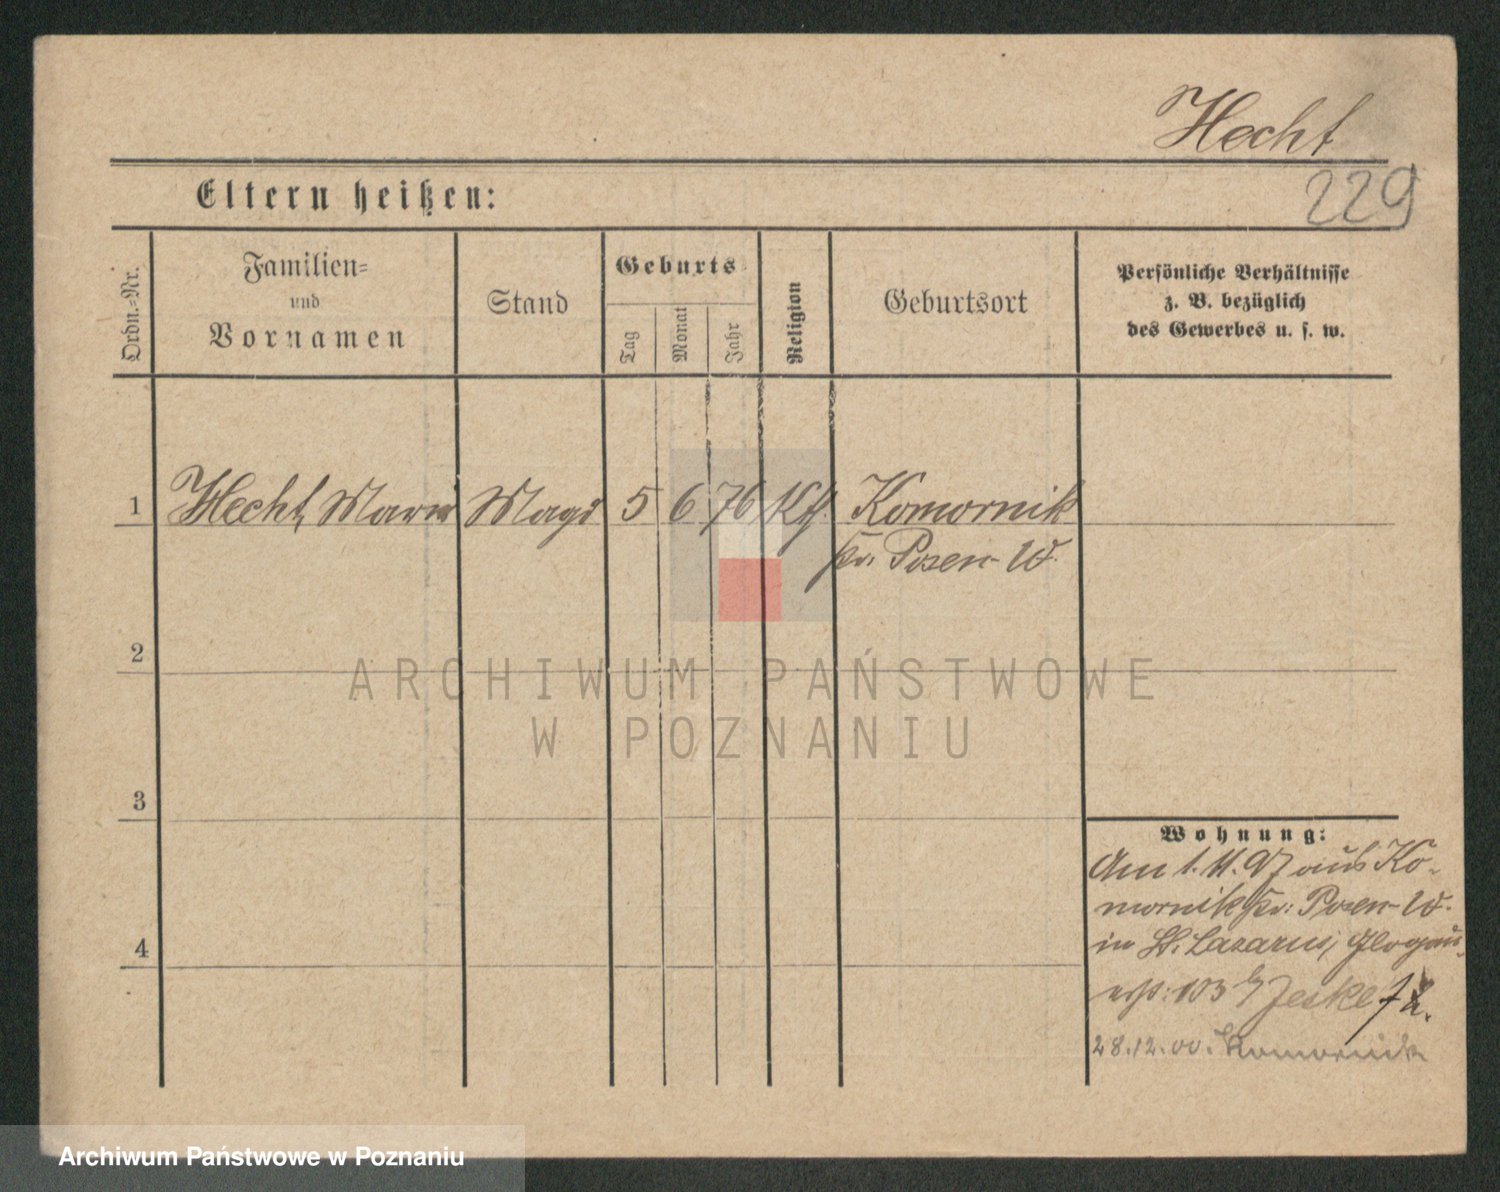 Hecht
229
Eltern heißen:
Ordn.-Nr.
Familien-
und
Vornamen
Stand
Geburts
Tag
Monat
Jahr
Religion
Geburtsort
Persönliche Verhältnisse
z. B. bezüglich
des Gewerbes u. s. w.
1 Hecht, Marie Magd 5 6 76 Kth Komornik
Kr. Posen-W.
2
ARCHIWUM PAŃSTWOWE
W POZNANIU
3
Wohnung:
Am 1.11.97 aus Ko-
mornik Kr: Posen-W.
in St. Lazarus, Glogau-
103 b/ Jeske
4
28.12.00. Komornik
Archiwum Państwowe w Poznaniu